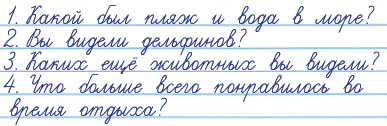 1. Какой был пляж и вода в море?
2. Вы видели дельфинов?
3. Каких ещё животных вы видели?
4. Что больше всего понравилось во
время отдыха?